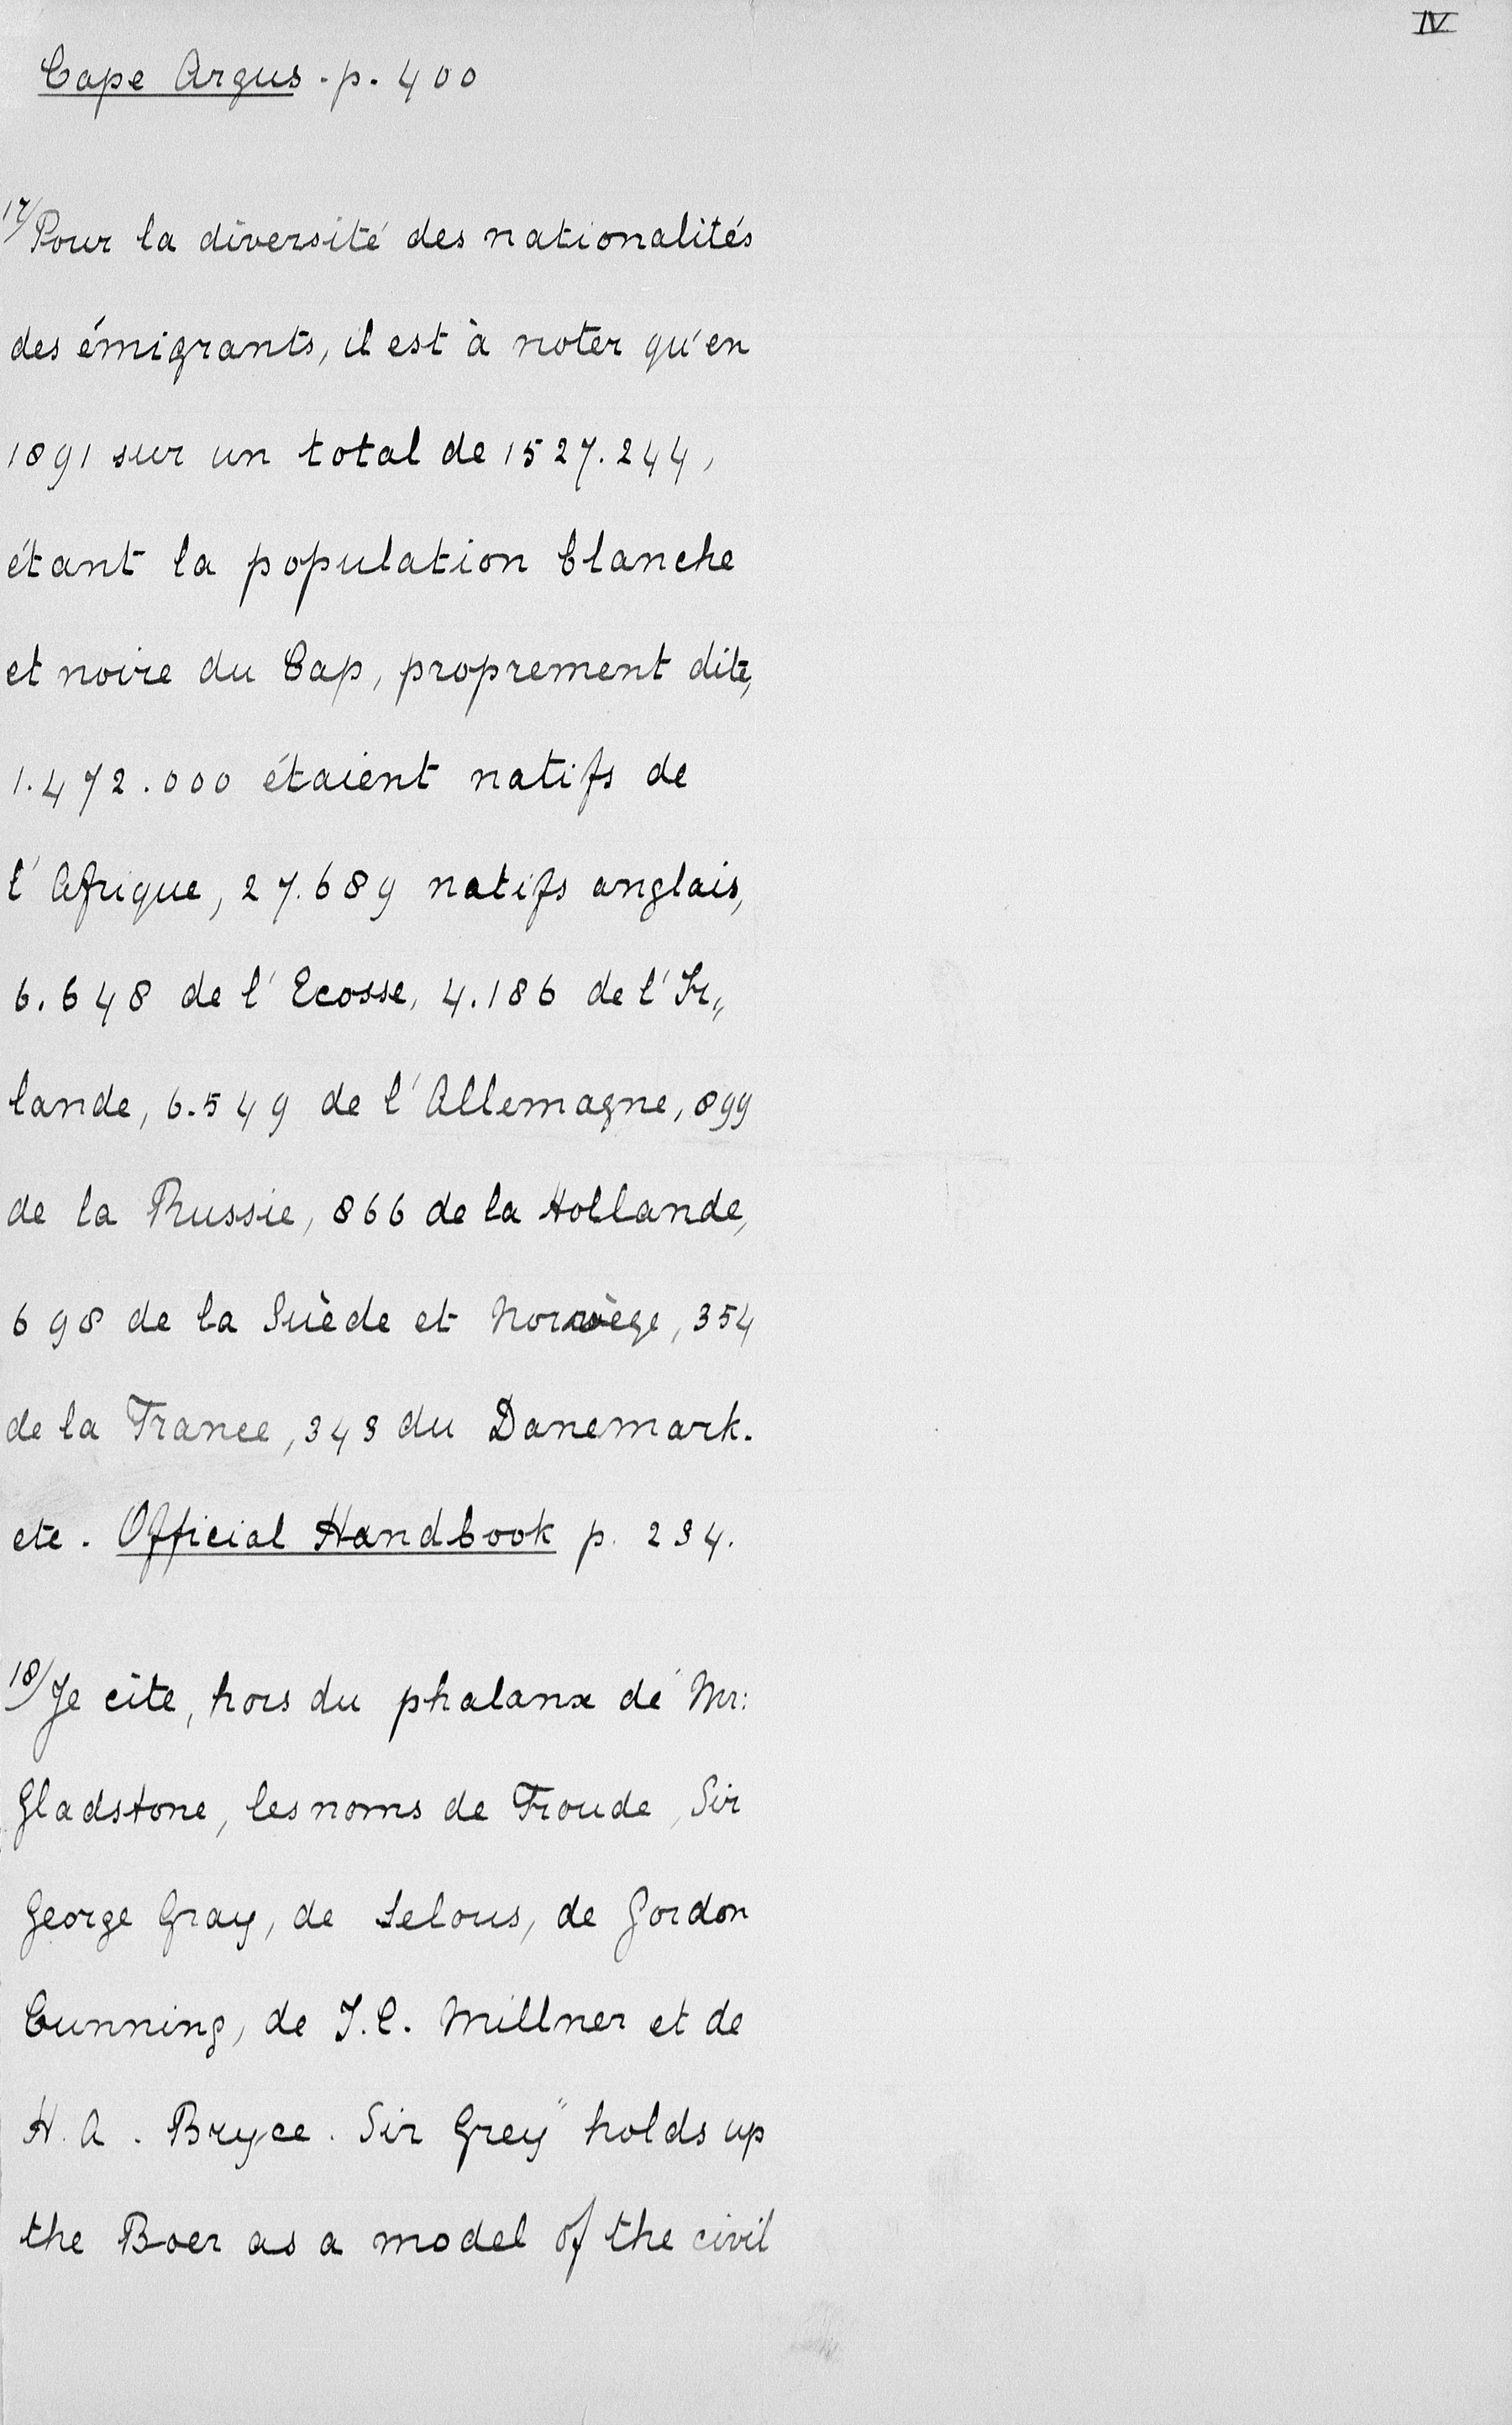 IV
Cape Argus. p. 400
17/ Pour la diversité des nationalités
des émigrants, il est à noter qu'en
1891 sur un total de 1527.244,
étant la population blanche
et noire du Cap, proprement dite,
1.472.000 étaient natifs de
l'Afrique, 27.689 natifs anglais,
6.648 de l'Ecosse, 4.186 de l'Ir„
lande, 6.549 de l'Allemagne, 899
de la Russie, 866 de la Hollande,
698 de la Suède et Norwège, 354
de la France, 343 du Danemark.
etc. Official Handbook p. 234.
18/ Je cite, hors du phalanx de Mr:
Gladstone, les noms de Froude, Sir
George Gray, de Selous, de Gordon
Cunning, de J.C. Millner et de
H. A. Bryce. Sir Grey "holds up
the Boer as a model of the civil